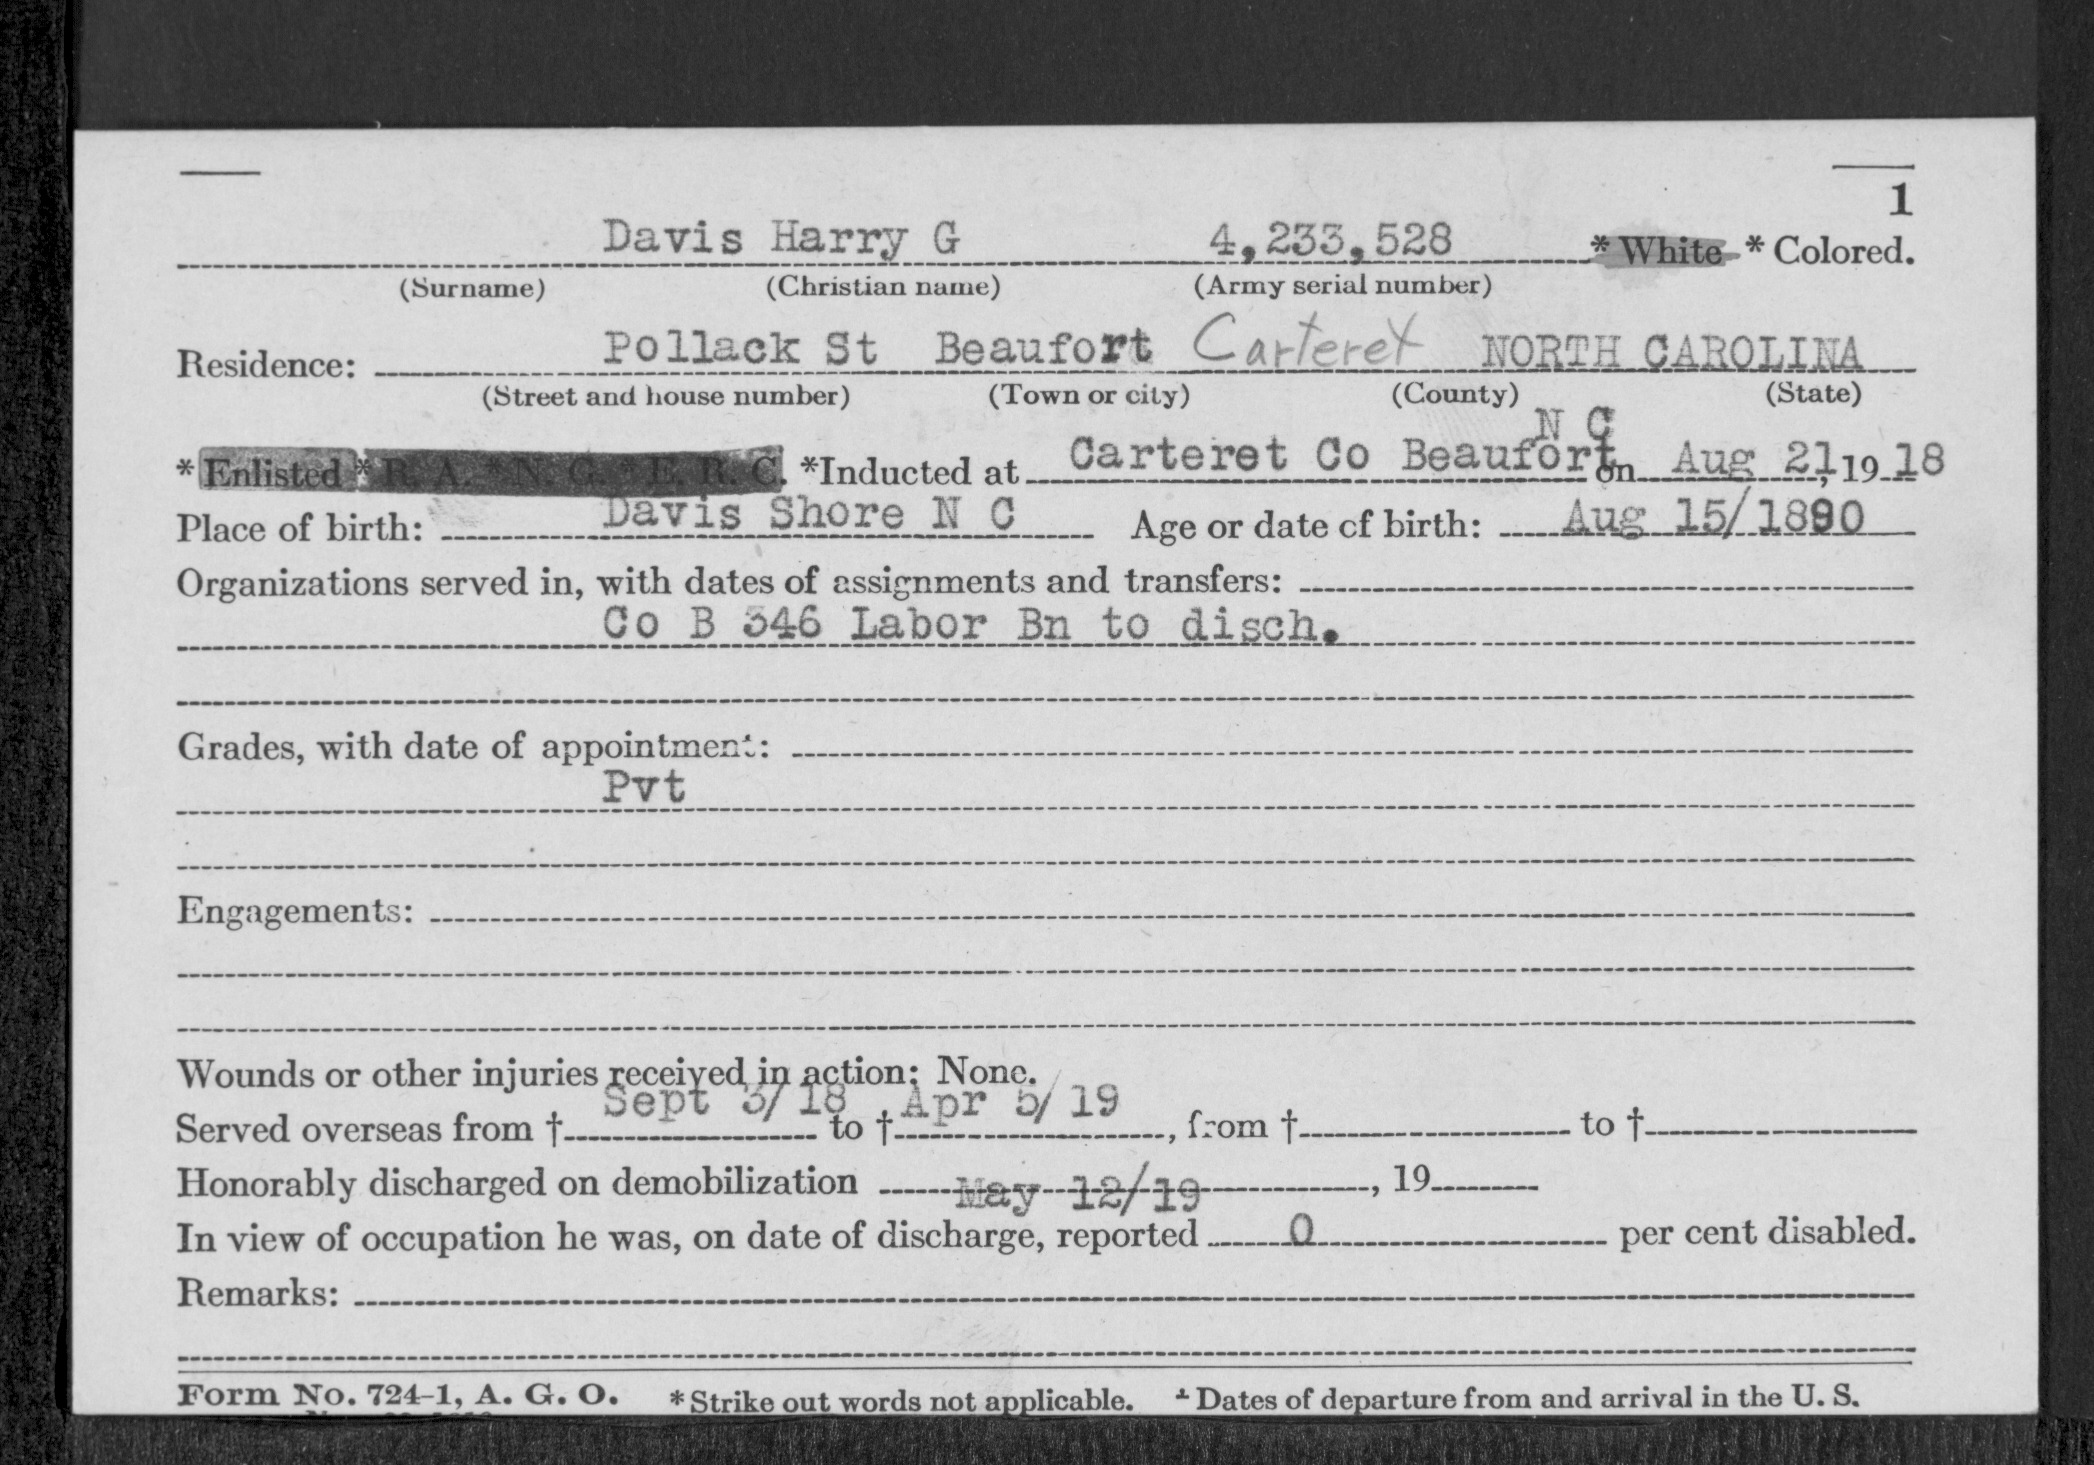 1
Davis Harry G 4,233,528 * White * Colored.
(Surname) (Christian name) (Army serial number)
Residence: Pollack St Beaufort Carteret NORTH CAROLINA
(Street and house number) (Town or city) (County) (State)
N C
* Enlisted * R. A. * N. G. * E. R. C. *Inducted at Carteret Co Beaufort on Aug 21, 19 18
Place of birth: Davis Shore N C Age or date of birth: Aug 15/1890
Organizations served in, with dates of assignments and transfers:
Co B 346 Labor Bn to disch.
Grades, with date of appointment:
Pvt
Engagements:
Wounds or other injuries received in action: None.
Served overseas from † Sept 3/18 to † Apr 5/19, from † to †
Honorably discharged on demobilization May 12/19, 19
In view of occupation he was, on date of discharge, reported 0 per cent disabled.
Remarks:
Form No. 724-1, A. G. O. * Strike out words not applicable. † Dates of departure from and arrival in the U. S.